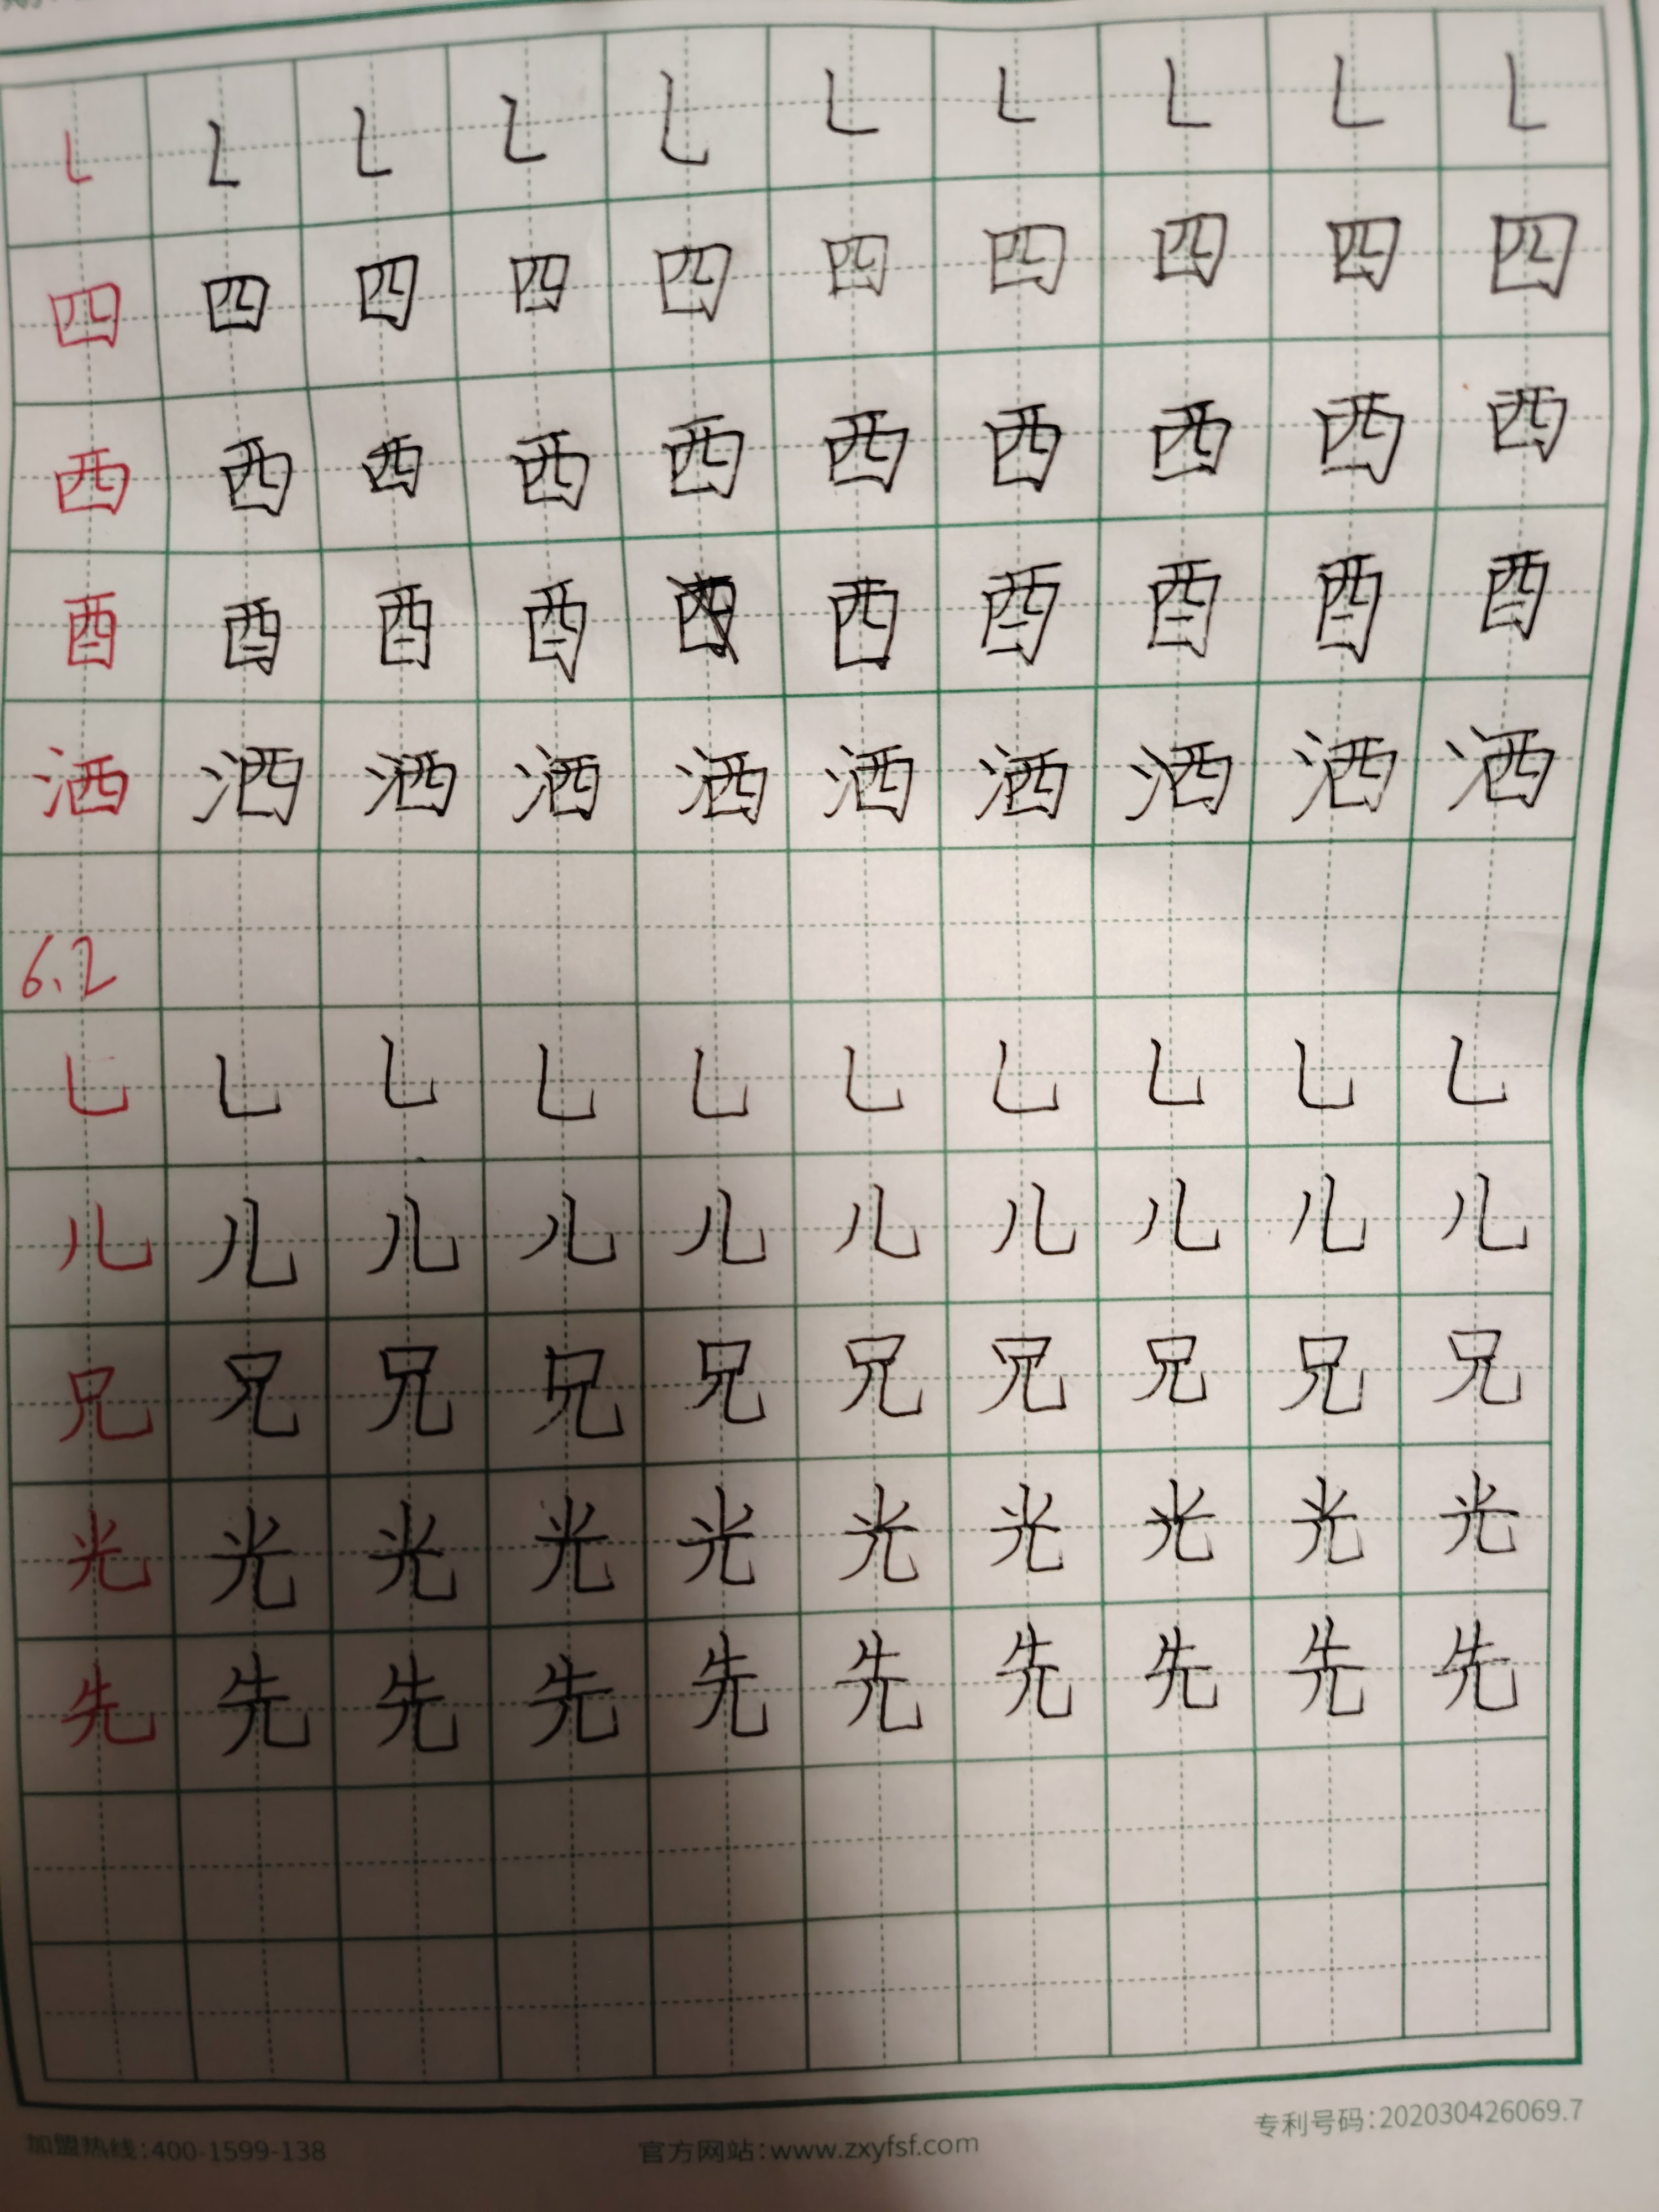 ㇄ ㇄ ㇄ ㇄ ㇄ ㇄ ㇄ ㇄ ㇄ ㇄
四 四 四 四 四 四 四 四 四 四
西 西 西 西 西 西 西 西 西 西
酉 酉 酉 酉 西 酉 酉 酉 酉
洒 洒 洒 洒 洒 洒 洒 洒 洒 洒
6.2
乚 乚 乚 乚 乚 乚 乚 乚 乚 乚
儿 儿 儿 儿 儿 儿 儿 儿 儿 儿
兄 兄 兄 兄 兄 兄 兄 兄 兄 兄
光 光 光 光 光 光 光 光 光 光
先 先 先 先 先 先 先 先 先 先
加盟热线:400-1599-138 官方网站:www.zxyfsf.com 专利号码:202030426069.7